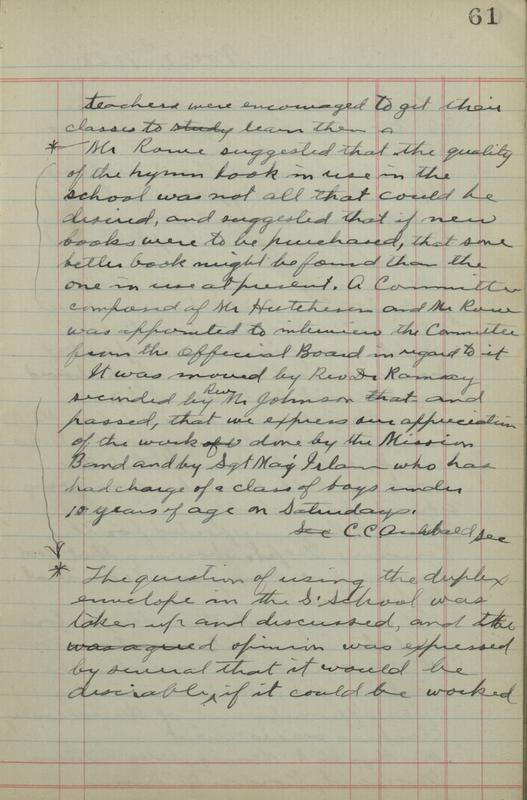 61
teachers were encouraged to get their
classes to study learn them a
* Mr Rowe suggested that the quality
of the hymn book in use in the
school was not all that could be
desired, and suggested that if new
books were to be purchased, that some
better book might be found than the
one in use at present. A Committee
composed of Mr Hutcheson and Mr Rowe
was appointed to interview the Committee
from the Official Board in regard to it
It was moved by Rev Dr Ramsay
seconded by Rev Mr Johnson that and
passed, that we express our appreciation
of the work of done by the Mission
Band and by Sgt Maj Islam who has
had charge of a class of boys under
10 years of age on Saturdays.
Sec C C Archibald sec
* The question of using the duplex
envelope in the S. School was
taken up and discussed, and the
was agreed opinion was expressed
by several that it would be
desirable, if it could be worked